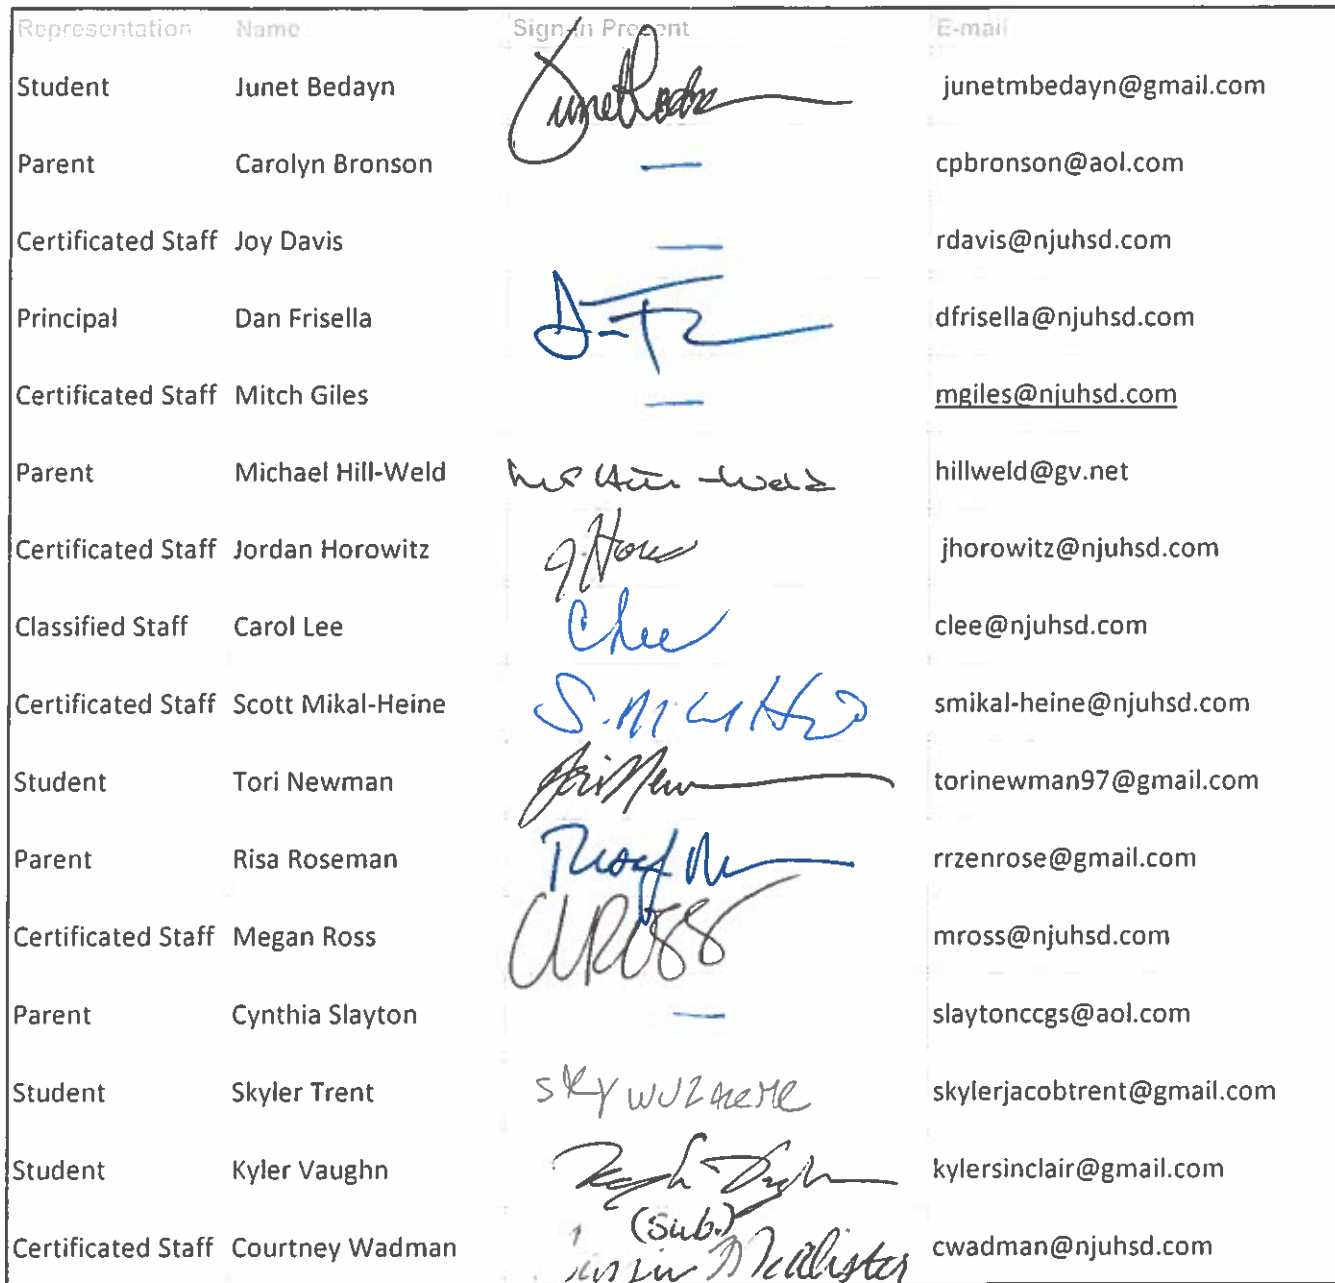 Representation Name Sign-In Present E-mail
Student Junet Bedayn junetmbedayn@gmail.com
Parent Carolyn Bronson — cpbronson@aol.com
Certificated Staff Joy Davis — rdavis@njuhsd.com
Principal Dan Frisella dfrisella@njuhsd.com
Certificated Staff Mitch Giles — mgiles@njuhsd.com
Parent Michael Hill-Weld hillweld@gv.net
Certificated Staff Jordan Horowitz jhorowitz@njuhsd.com
Classified Staff Carol Lee Clee clee@njuhsd.com
Certificated Staff Scott Mikal-Heine smikal-heine@njuhsd.com
Student Tori Newman torinewman97@gmail.com
Parent Risa Roseman rrzenrose@gmail.com
Certificated Staff Megan Ross mross@njuhsd.com
Parent Cynthia Slayton — slaytonccgs@aol.com
Student Skyler Trent SKY WUZ HERE skylerjacobtrent@gmail.com
Student Kyler Vaughn kylersinclair@gmail.com
(sub.)
Certificated Staff Courtney Wadman cwadman@njuhsd.com